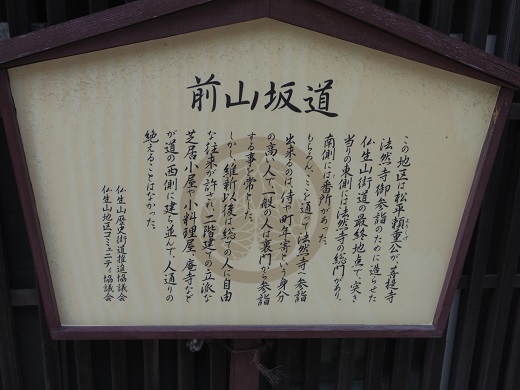 前山坂道
この地区は松平頼重公が、菩提寺
法然寺御参詣のために造らせた
仏生山街道の最終地点で、突き
当りの東側には法然寺の総門があり、
南側には番所があった。
もちろん、ここを通って法然寺へ参詣
出来るのは、侍や町年寄という身分
の高い人で、一般の人は裏門から参詣
する事を常とした。
しかし、維新以後は総ての人に自由
な往来が許され、二階建ての立派な
芝居小屋や小料理屋、庵寺など
が道の西側に建ち並んで、人通りの
絶えることはなかった。
仏生山歴史街道推進協議会
仏生山地区コミュニティ協議会